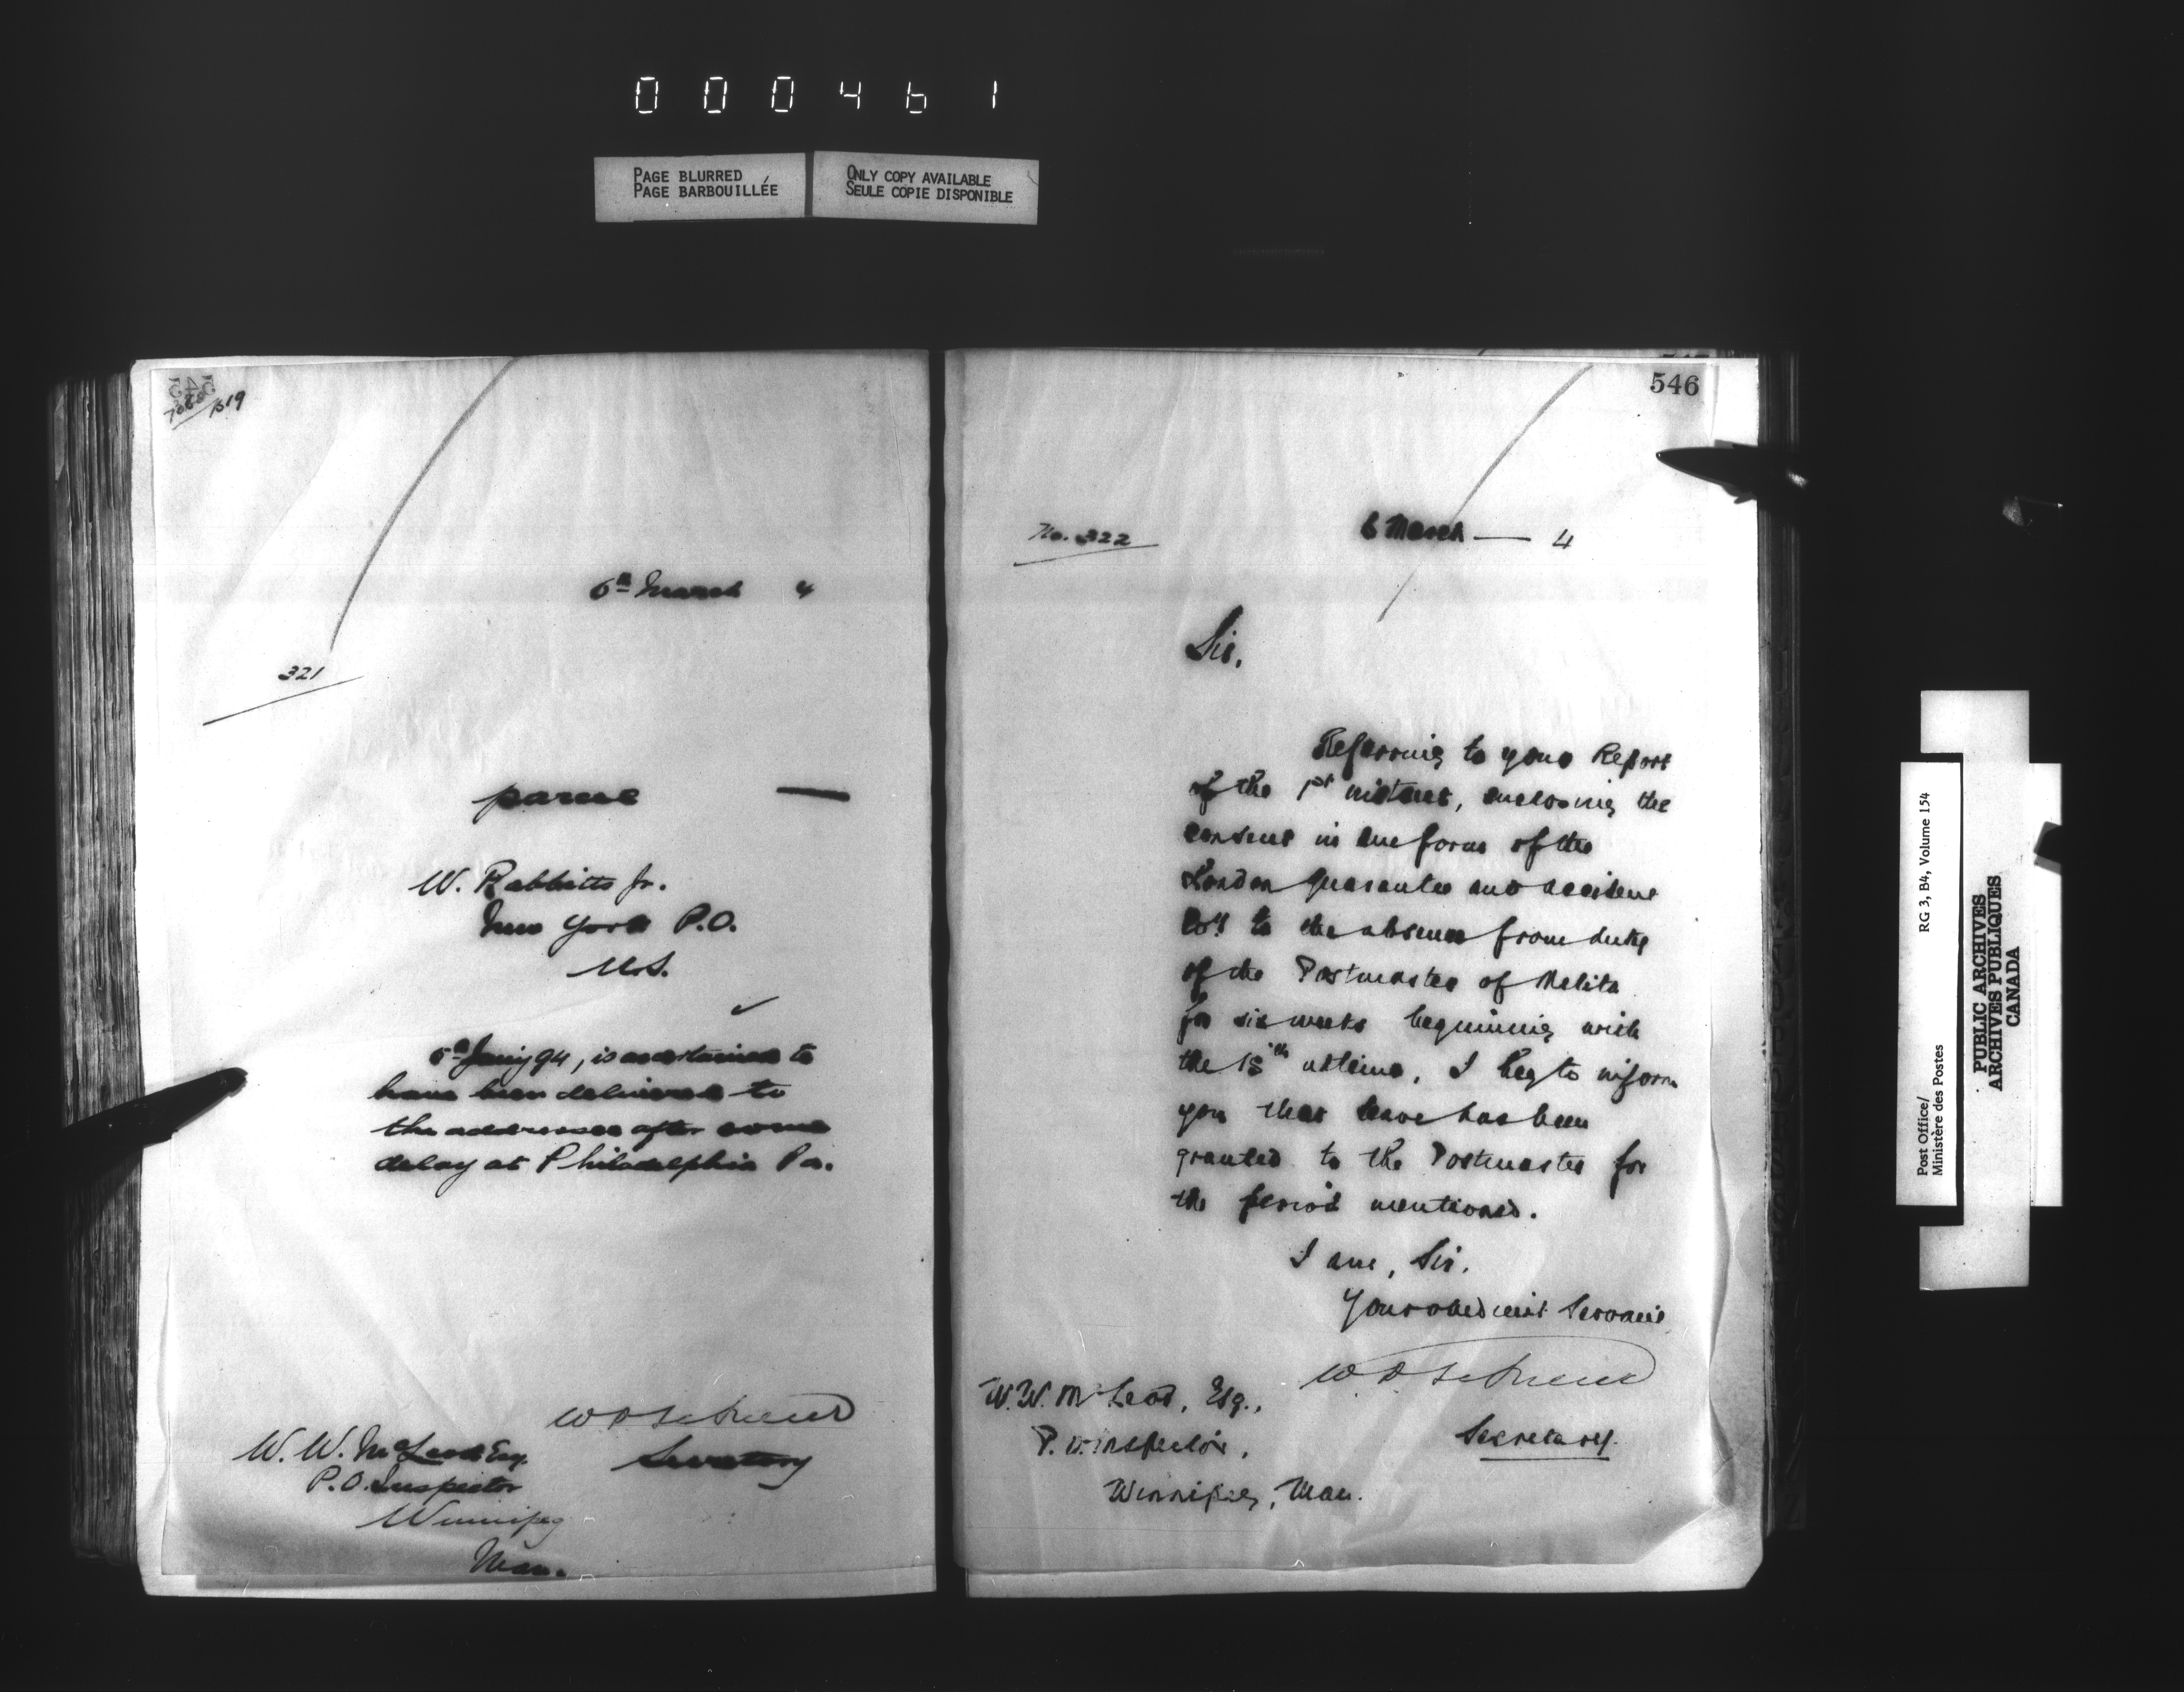 000461
PAGE BLURRED
PAGE BARBOUILLÉE
ONLY COPY AVAILABLE
SEULE COPIE DISPONIBLE
545
1519
6th March 4
321
parcel —
W. Rabbitts Jr.
New York P.O.
U.S.
5th Jan'y 94, is ascertained to
have been delivered to
the addressee after some
delay at Philadelphia Pa.
Secretary
W. W. McLeod Esq.
P.O. Inspector
Winnipeg
Man.
546
No. 322
6 March — 4
Sir,
Referring to your Report
of the 1st instant, enclosing the
consent in due form of the
London Guarantee and Accident
Coy to the absence from duty
of the Postmaster of Melita
for six weeks beginning with
the 15th ultimo, I beg to inform
you that leave has been
granted to the Postmaster for
the period mentioned.
I am, Sir,
Your obedient Servant
Secretary.
W. W. McLeod, Esq.,
P. O. Inspector,
Winnipeg, Man.
Post Office/
Ministère des Postes
RG 3, B4, Volume 154
PUBLIC ARCHIVES
ARCHIVES PUBLIQUES
CANADA